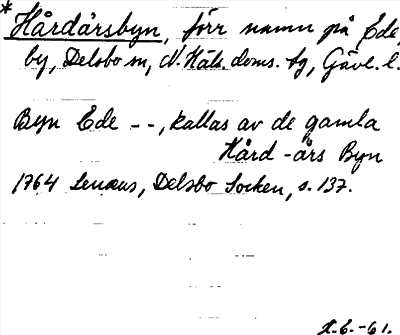 * Hårdårsbyn, förr namn på Ede,
by, Delsbo sn, N. Häls. doms. tg, Gävl. l.
Byn Ede --, kallas av de gamla
Hård-års Byn
1764 Lenæus, Delsbo Socken, s. 137.
X.6.-61.